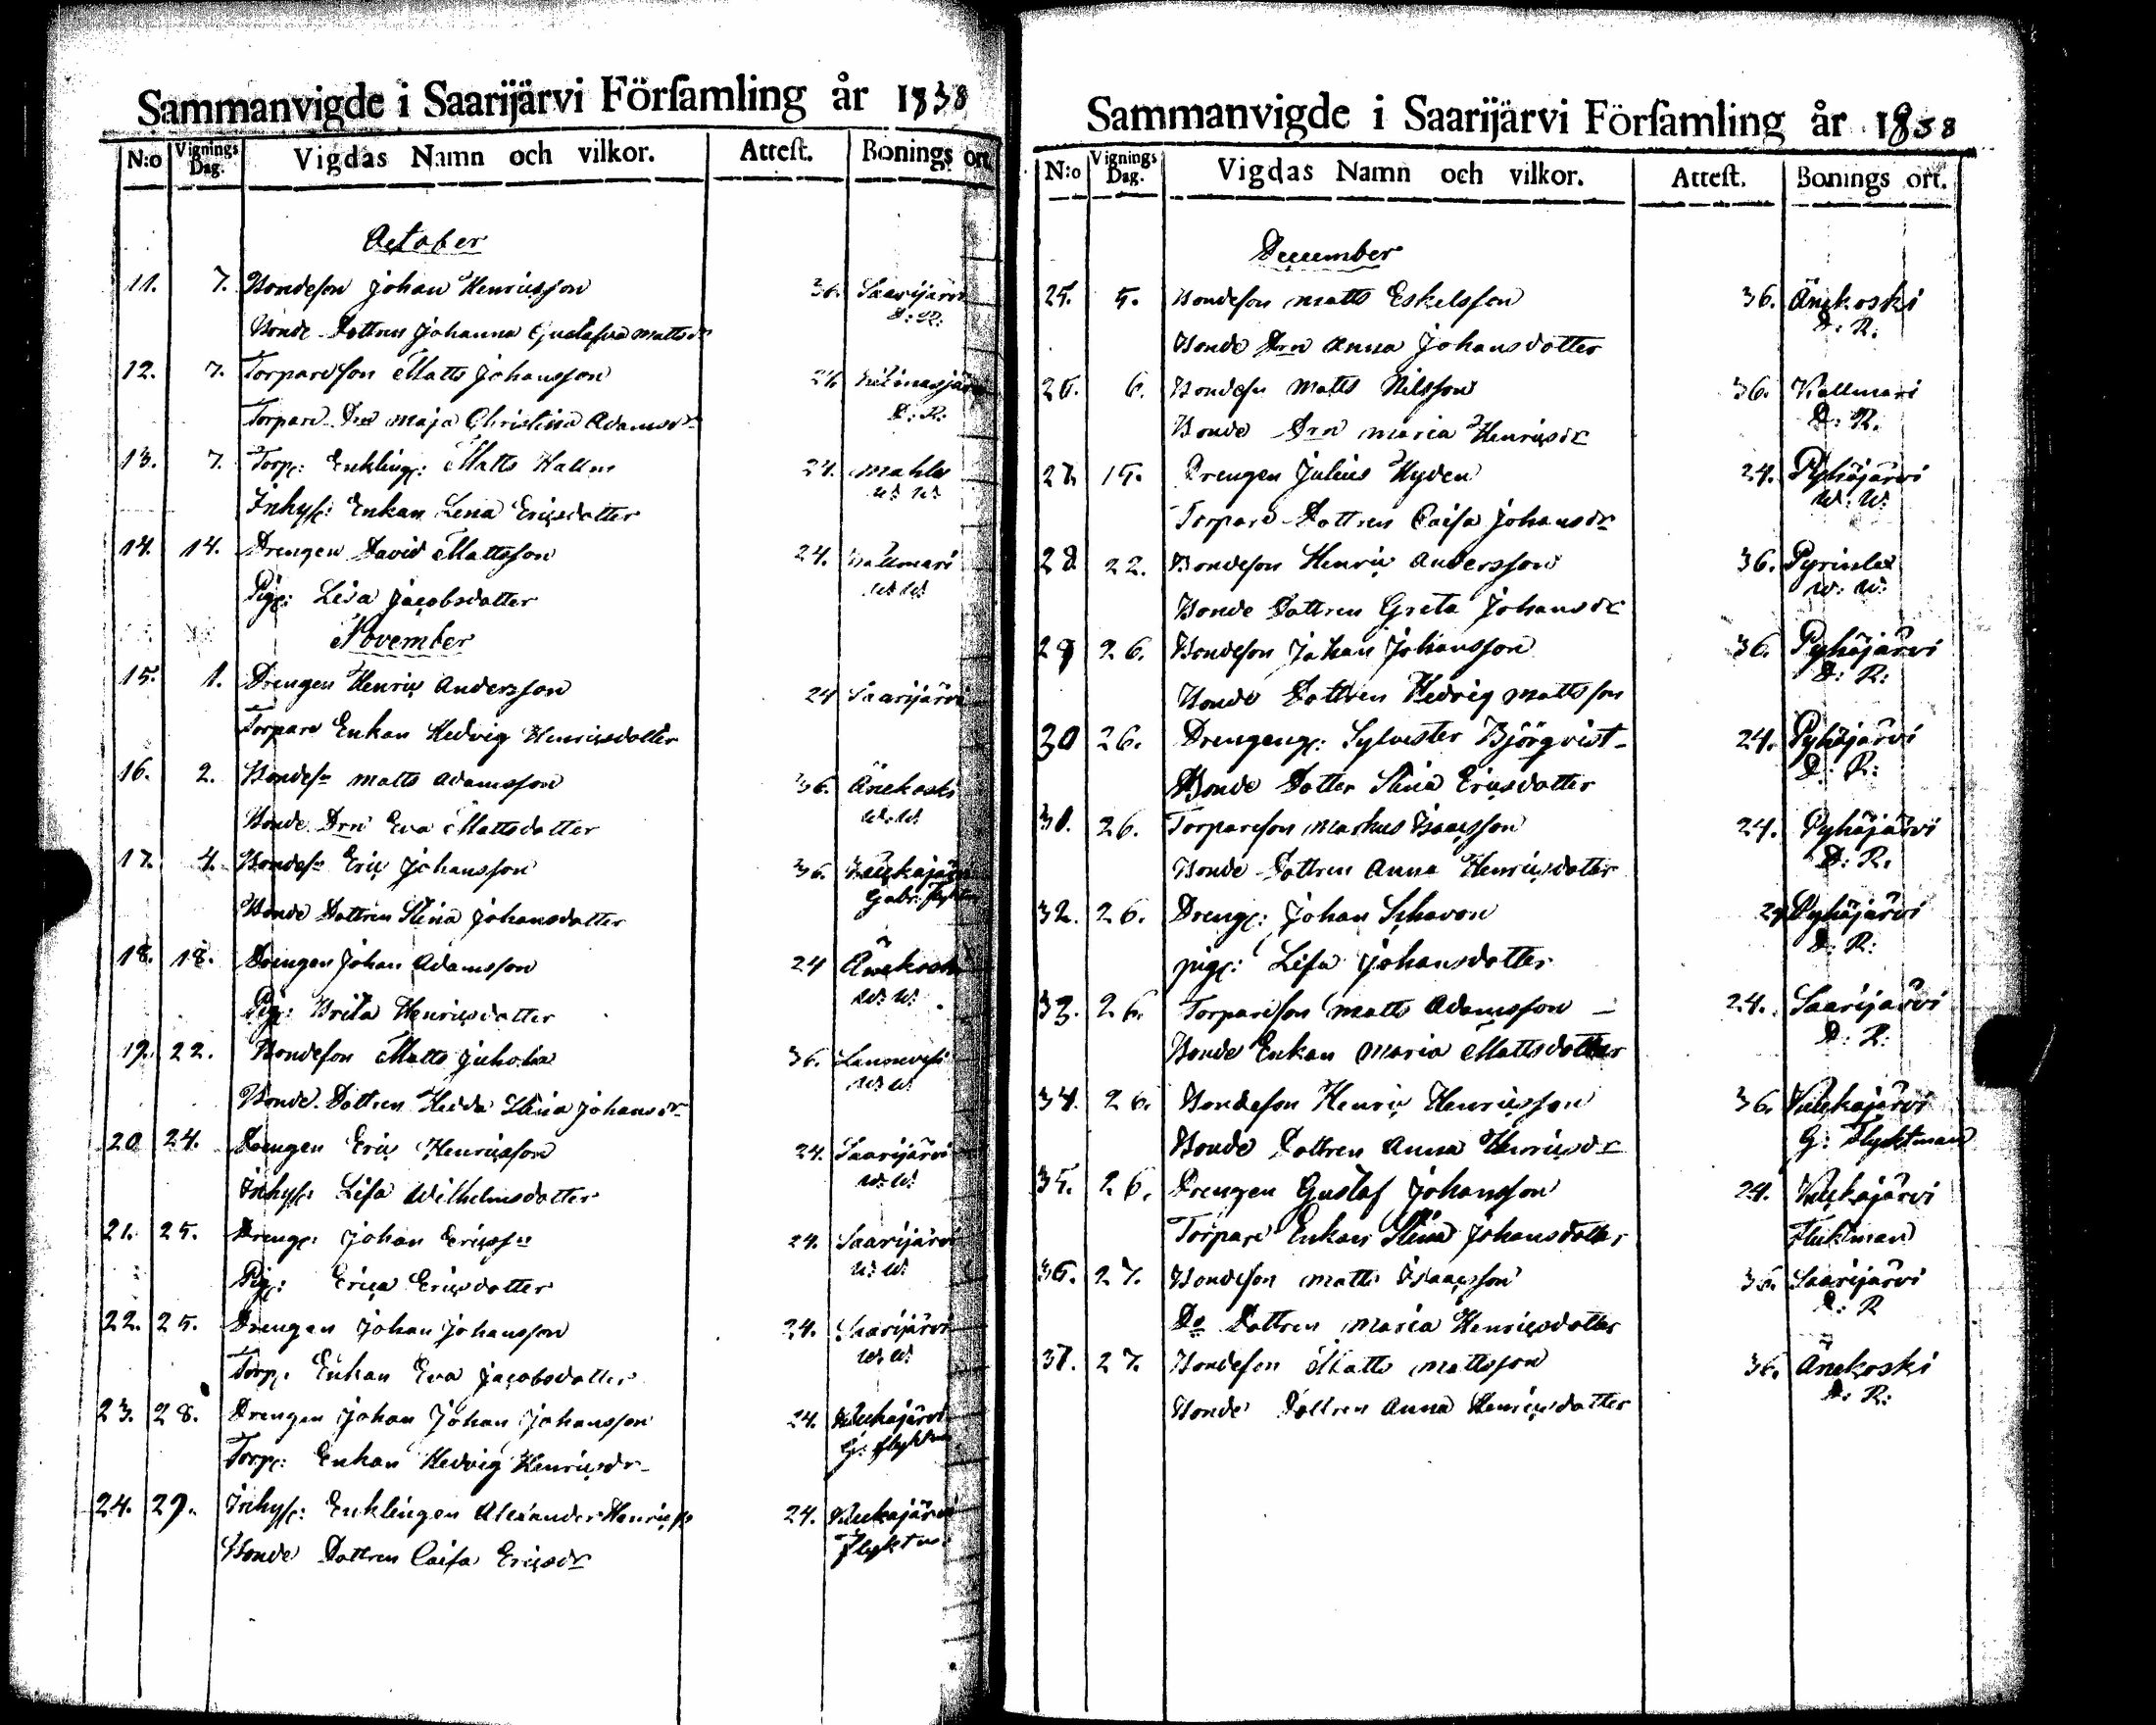 Sammanvigde i Saarijärvi Församling år 1838
N:o Vignings Dag. Vigdas Namn och vilkor. Attest. Bonings ort.
October
11. 7. Bondeson Johan Henricsson 36. Saarijärvi
Bonde Dottren Johanna Gustafva Mattsdr D: R:
12. 7. Torpareson Matts Johansson 24.
Torpare Drn Maja Christina Adamsdr D: R:
13. 7. Torp: Enkling: Matts Hallm 24. Mahlu
Inhys: Enkan Lena Ericsdotter W: W:
14. 14. Drengen David Mattsson 24. Kallmari
Pig: Lisa Jacobsdotter W: W:
November
15. 1. Drengen Henric Andersson 24 Saarijärvi
Torpare Enkan Hedvig Henricsdotter
16. 2. Bondesn Matts Adamsson 36. Änekoski
Bonde Drn Eva Mattsdotter W: W:
17. 4. Bondesn Eric Johansson 36.
Bonde Dottren Stina Johansdotter Gabr: Flyktm
18. 18. Drengen Johan Adamsson 24 Änekoski
Pig: Brita Henricsdotter W: W:
19. 22. Bondeson Matts Juhola 36. Lannevesi
Bonde Dottren Hedda Stina Johansdr W: W:
20 24. Drengen Eric Henricsson 24. Saarijärvi
Inhys: Lisa Wilhelmsdotter W: W:
21. 25. Dreng: Johan Ericssn 24. Saarijärvi
Pig: Erica Ericsdotter W: W:
22. 25. Drengen Johan Johansson 24. Saarijärvi
Torp: Enkan Eva Jacobsdotter W: W:
23. 28. Drengen Johan Johan Johansson 24. Kalekajärvi
Torp: Enkan Hedvig Henricsdr G: Flyktm
24. 29. Inhys: Enklingen Alexander Henricss 24.
Bonde Dottren Caisa Ericsdr Flyktm
Sammanvigde i Saarijärvi Församling år 1838
N:o Vignings Dag. Vigdas Namn och vilkor. Attest. Bonings ort.
December
25. 5. Bondeson Matts Eskelsson 36. Änekoski
Bonde Drn Anna Johansdotter D: R:
26. 6. Bondesn Matts Nilsson 36. Kallmari
Bonde Drn Maria Henricsdr D: R.
27. 15. Drengen Julius Hyden 24. Pyhäjärvi
Torpare Dottren Caisa Johansdr W: W:
28. 22. Bondeson Henric Andersson 36. Pyrinlex
Bonde Dottren Greta Johansdr W: W:
29 26. Bondeson Johan Johansson 36. Pyhäjärvi
Bonde Dottren Hedvig Mattsson D: R:
30 26. Drengeng: Sylvester Björqvist 24. Pyhäjärvi
Bonde Dotter Stina Ericsdotter D: R:
31. 26. Torpareson Markus Isaacsson 24. Pyhäjärvi
Bonde Dottren Anna Henricsdotter D: R.
32. 26. Dreng: Johan Schavon 24 Pyhäjärvi
pig: Lisa Johansdotter D: R:
33. 26. Torpareson Matts Adamsson 24. Saarijärvi
Bonde Enkan Maria Mattsdotter D: R:
34. 26. Bondeson Henric Henricsson 36.
Bonde Dottren Anna Henricsdr G: Flyktman
35. 26. Drengen Gustaf Johansson 24.
Torpare Enkan Stina Johansdotter Fluktman
36. 27. Bondeson Matts Isaacsson 36 Saarijärvi
Do Dottren Maria Henricsdotter D: R
37. 27. Bondeson Matts Mattsson 36. Änekoski
Bonde Dottren Anna Henricsdotter D: R: